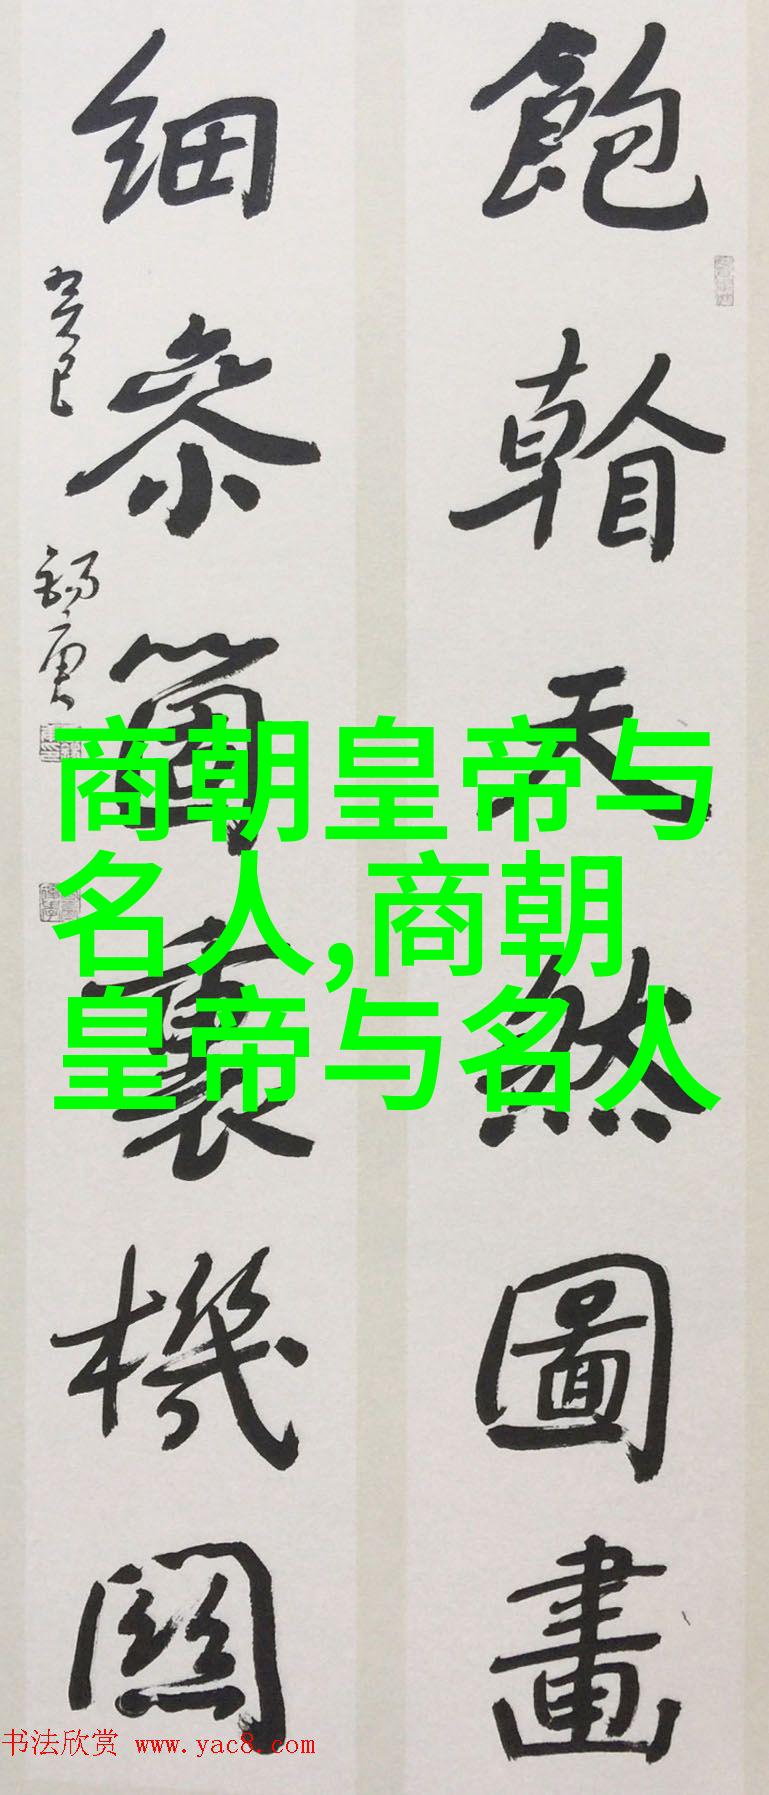 飽天然圖畫
細參箇裏機關
癸巳
商朝皇帝与
名人,商朝
皇帝与名人
书法欣赏 www.yac8.com